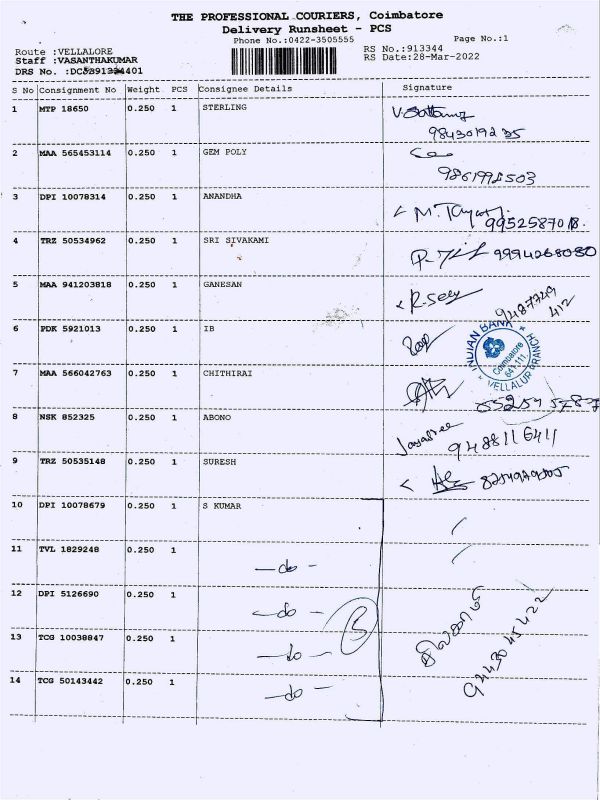 THE PROFESSIONAL COURIERS, Coimbatore
Delivery Runsheet - PCS
Phone No.:0422-3505555
Page No.:1
Route :VELLALORE
Staff :VASANTHAKUMAR
RS No.:913344
RS Date:28-Mar-2022
S No Consignment No Weight PCS Consignee Details Signature
1 MTP 18650 0.250 1 STERLING
2 MAA 565453114 0.250 1 GEM POLY
3 DPI 10078314 0.250 1 ANANDHA
4 TRZ 50534962 0.250 1 SRI SIVAKAMI
9994268080
5 MAA 941203818 0.250 1 GANESAN
9487749
412
6 PDK 5921013 0.250 1 IB
INDIAN BANK
Coimbatore
641 111.
VELLALUR BRANCH
7 MAA 566042763 0.250 1 CHITHIRAI
8 NSK 852325 0.250 1 ABONO
Jayasree
9488116411
9 TRZ 50535148 0.250 1 SURESH
10 DPI 10078679 0.250 1 S KUMAR
11 TVL 1829248 0.250 1 -do-
12 DPI 5126690 0.250 1 -do-
5
13 TCG 10038847 0.250 1 -do-
14 TCG 50143442 0.250 1 -do-
9443045422